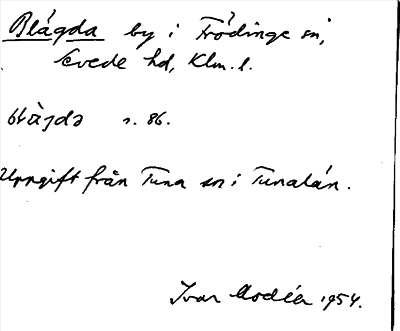 Blågda by i Frödinge sn,
Sevede hd, Klm. l.
blàgda s. 86.
Uppgift från Tuna sn i Tunalän.
Ivar Modéer 1954.